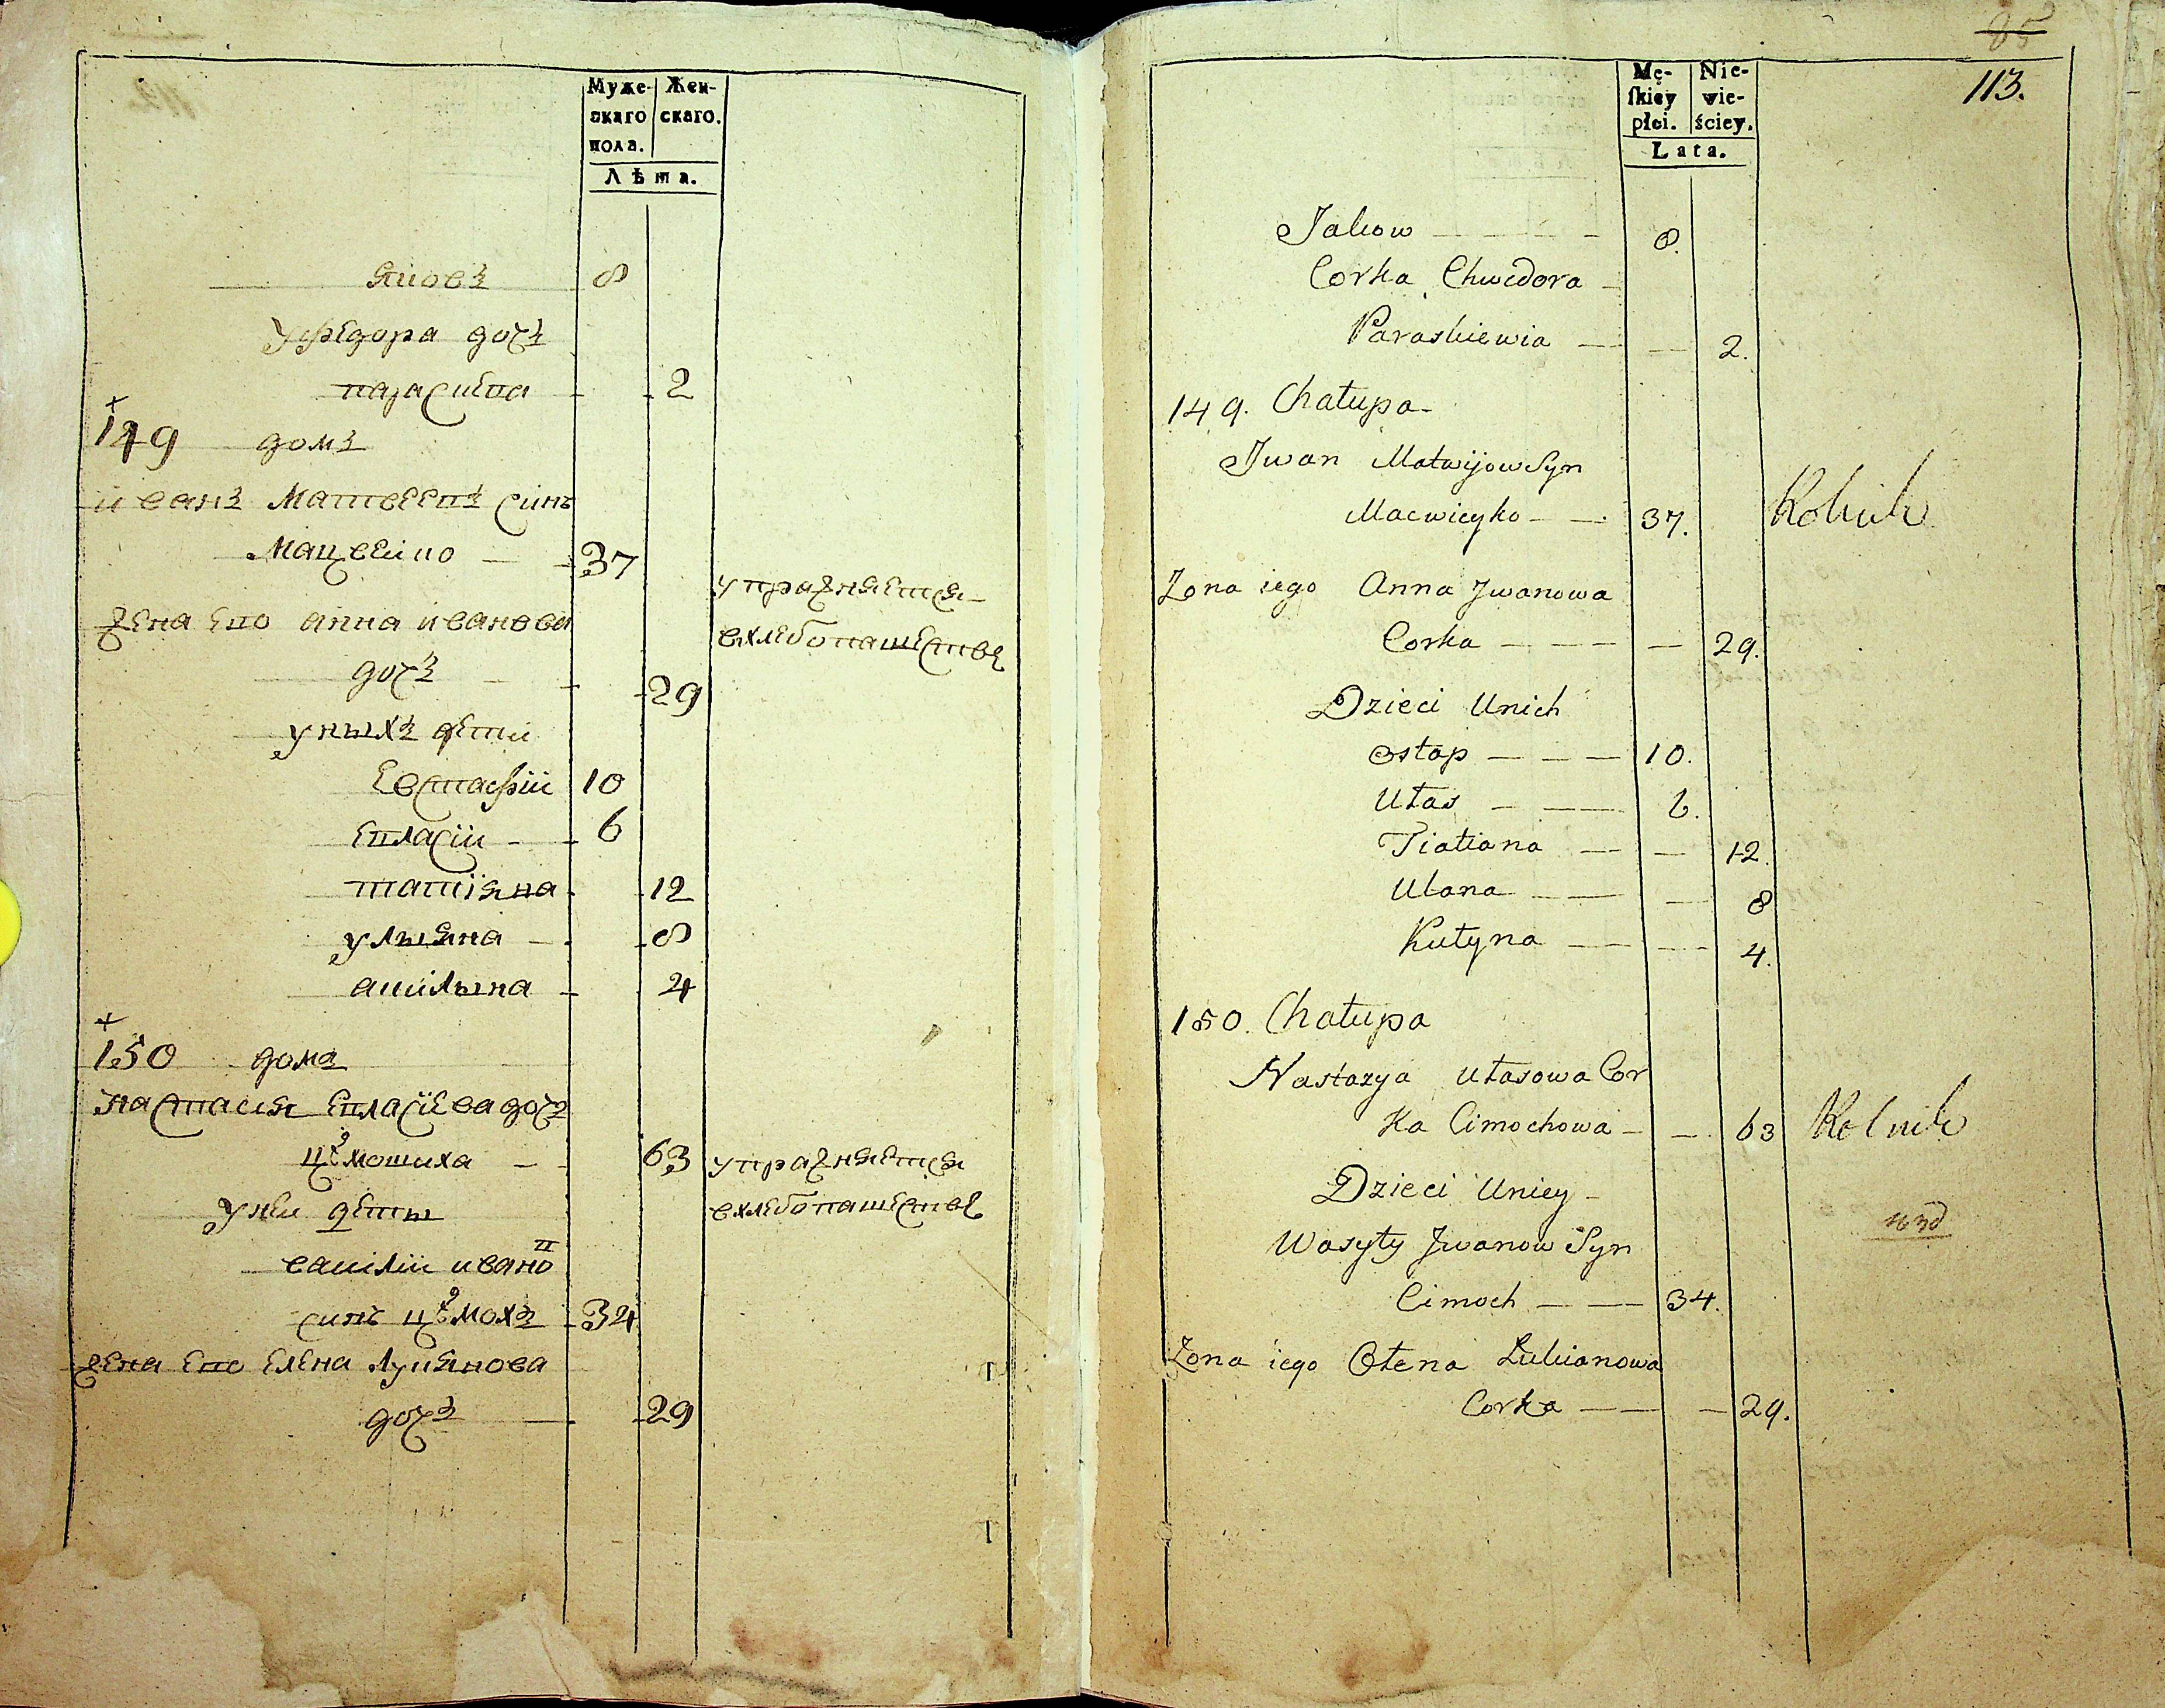 Муже-
скаго
пола.
Жен-
скаго.
Лѣта.
Яковъ 8
У Федора дочь
параскева - - 2
149 домъ
иванъ Матвеевъ синъ
Мацвейко — - 37
жена его анна иванова
дочъ - - 29
упражняется
вхлебопашестве
уныхъ дети
Евстафiй 10
Евласiй - - 6
татiяна - - 12
ульяна - - 8
акилына - 4
150 домъ
настасия Евласiева дочъ
цѣмошиха — - 63
упражняется
вхлебопашестве
уней деты
василiй ивановъ
синъ цѣмохъ - 34
жена его Елена лукянова
дочъ — - 29
85
113.
Mę-
skiey
płci.
Nie-
wie-
ściey.
Lata.
Jakow — — — — - 8.
Corka Chwedora -
Paraskiewia — — 2.
149. Chałupa -
Jwan Matwijow Syn
Macwieyko - — 37.
Rolnik
Zona iego Anna Jwanowa
Corka - — — — 29.
Dzieci Unich
Ostap — — — 10.
Ułas - — — 6.
Tiatiana — — 12.
Ulana — — — 8
Kulyna — — 4.
150. Chałupa
Nastazya Ułasowa Cor
ka Cimochowa - — 63
Rolnik
Dzieci Uniey -
Wasyły Jwanow Syn
Cimoch — — 34.
Zona iego Ołena Łukianowa
Corka — — — 29.